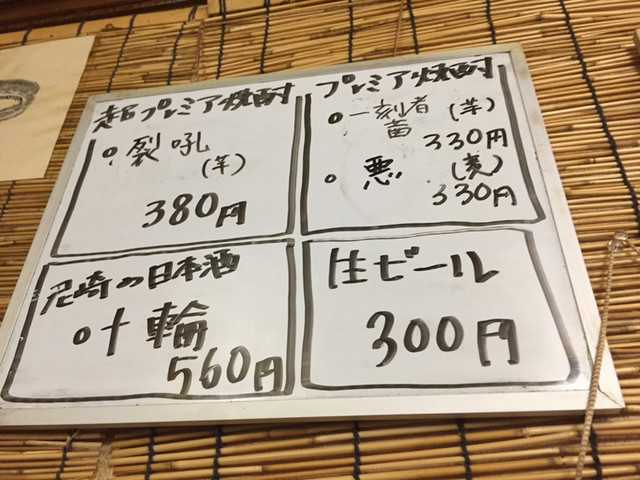 超プレミア焼酎
裂吼
(芋)
380円
プレミア焼酎
一刻者 (芋)
330円
悪 (麦)
330円
尼崎の日本酒
十輪
560円
生ビール
300円